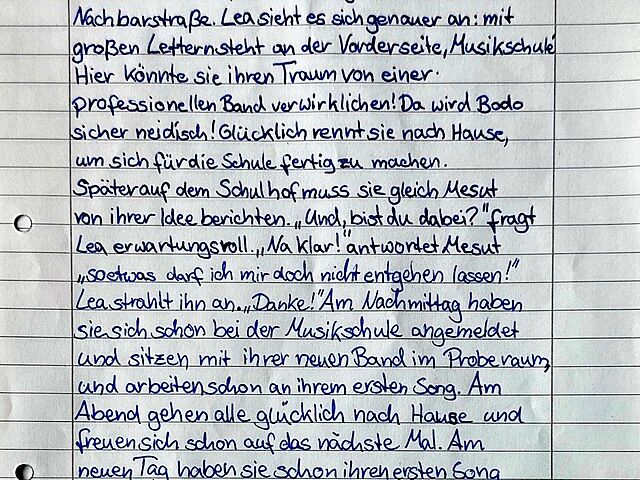 Nachbarstraße. Lea sieht es sich genauer an: mit
großen Lettern steht an der Vorderseite, Musikschule
Hier könnte sie ihren Traum von einer
professionellen Band verwirklichen! Da wird Bodo
sicher neidisch! Glücklich rennt sie nach Hause,
um sich für die Schule fertig zu machen.
Später auf dem Schulhof muss sie gleich Mesut
von ihrer Idee berichten. „Und, bist du dabei?" fragt
Lea erwartungsvoll. „Na klar!" antwortet Mesut
„soetwas darf ich mir doch nicht entgehen lassen!"
Lea strahlt ihn an. „Danke!" Am Nachmittag haben
sie sich schon bei der Musikschule angemeldet
und sitzen mit ihrer neuen Band im Proberaum,
und arbeiten schon an ihrem ersten Song. Am
Abend gehen alle glücklich nach Hause und
freuen sich schon auf das nächste Mal. Am
neuen Tag haben sie schon ihren ersten Song